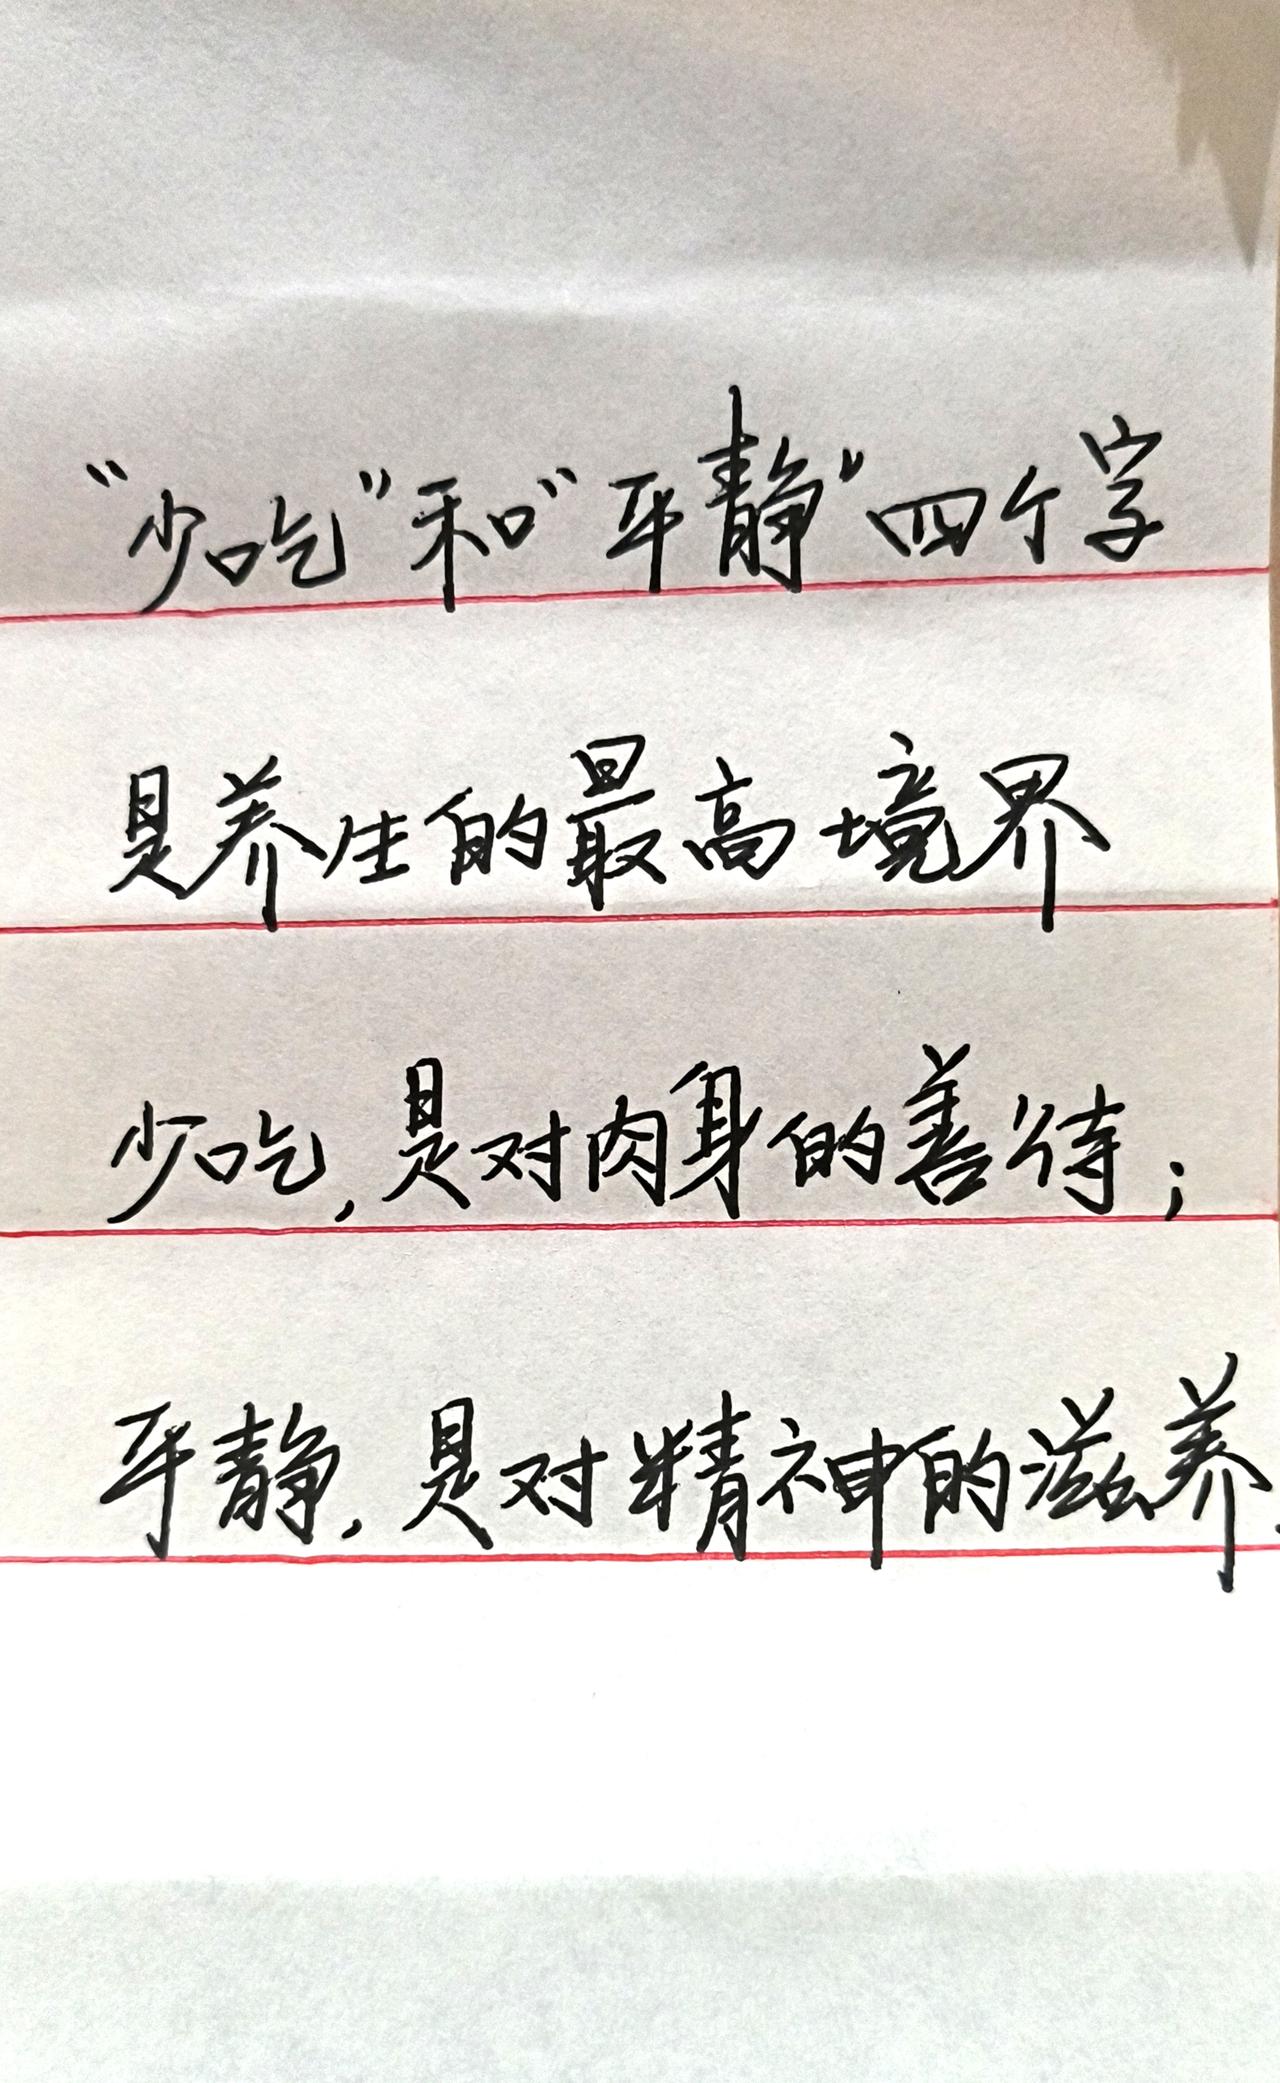 “少吃”和“平静”四个字
是养生的最高境界
少吃，是对肉身的善待；
平静，是对精神的滋养.